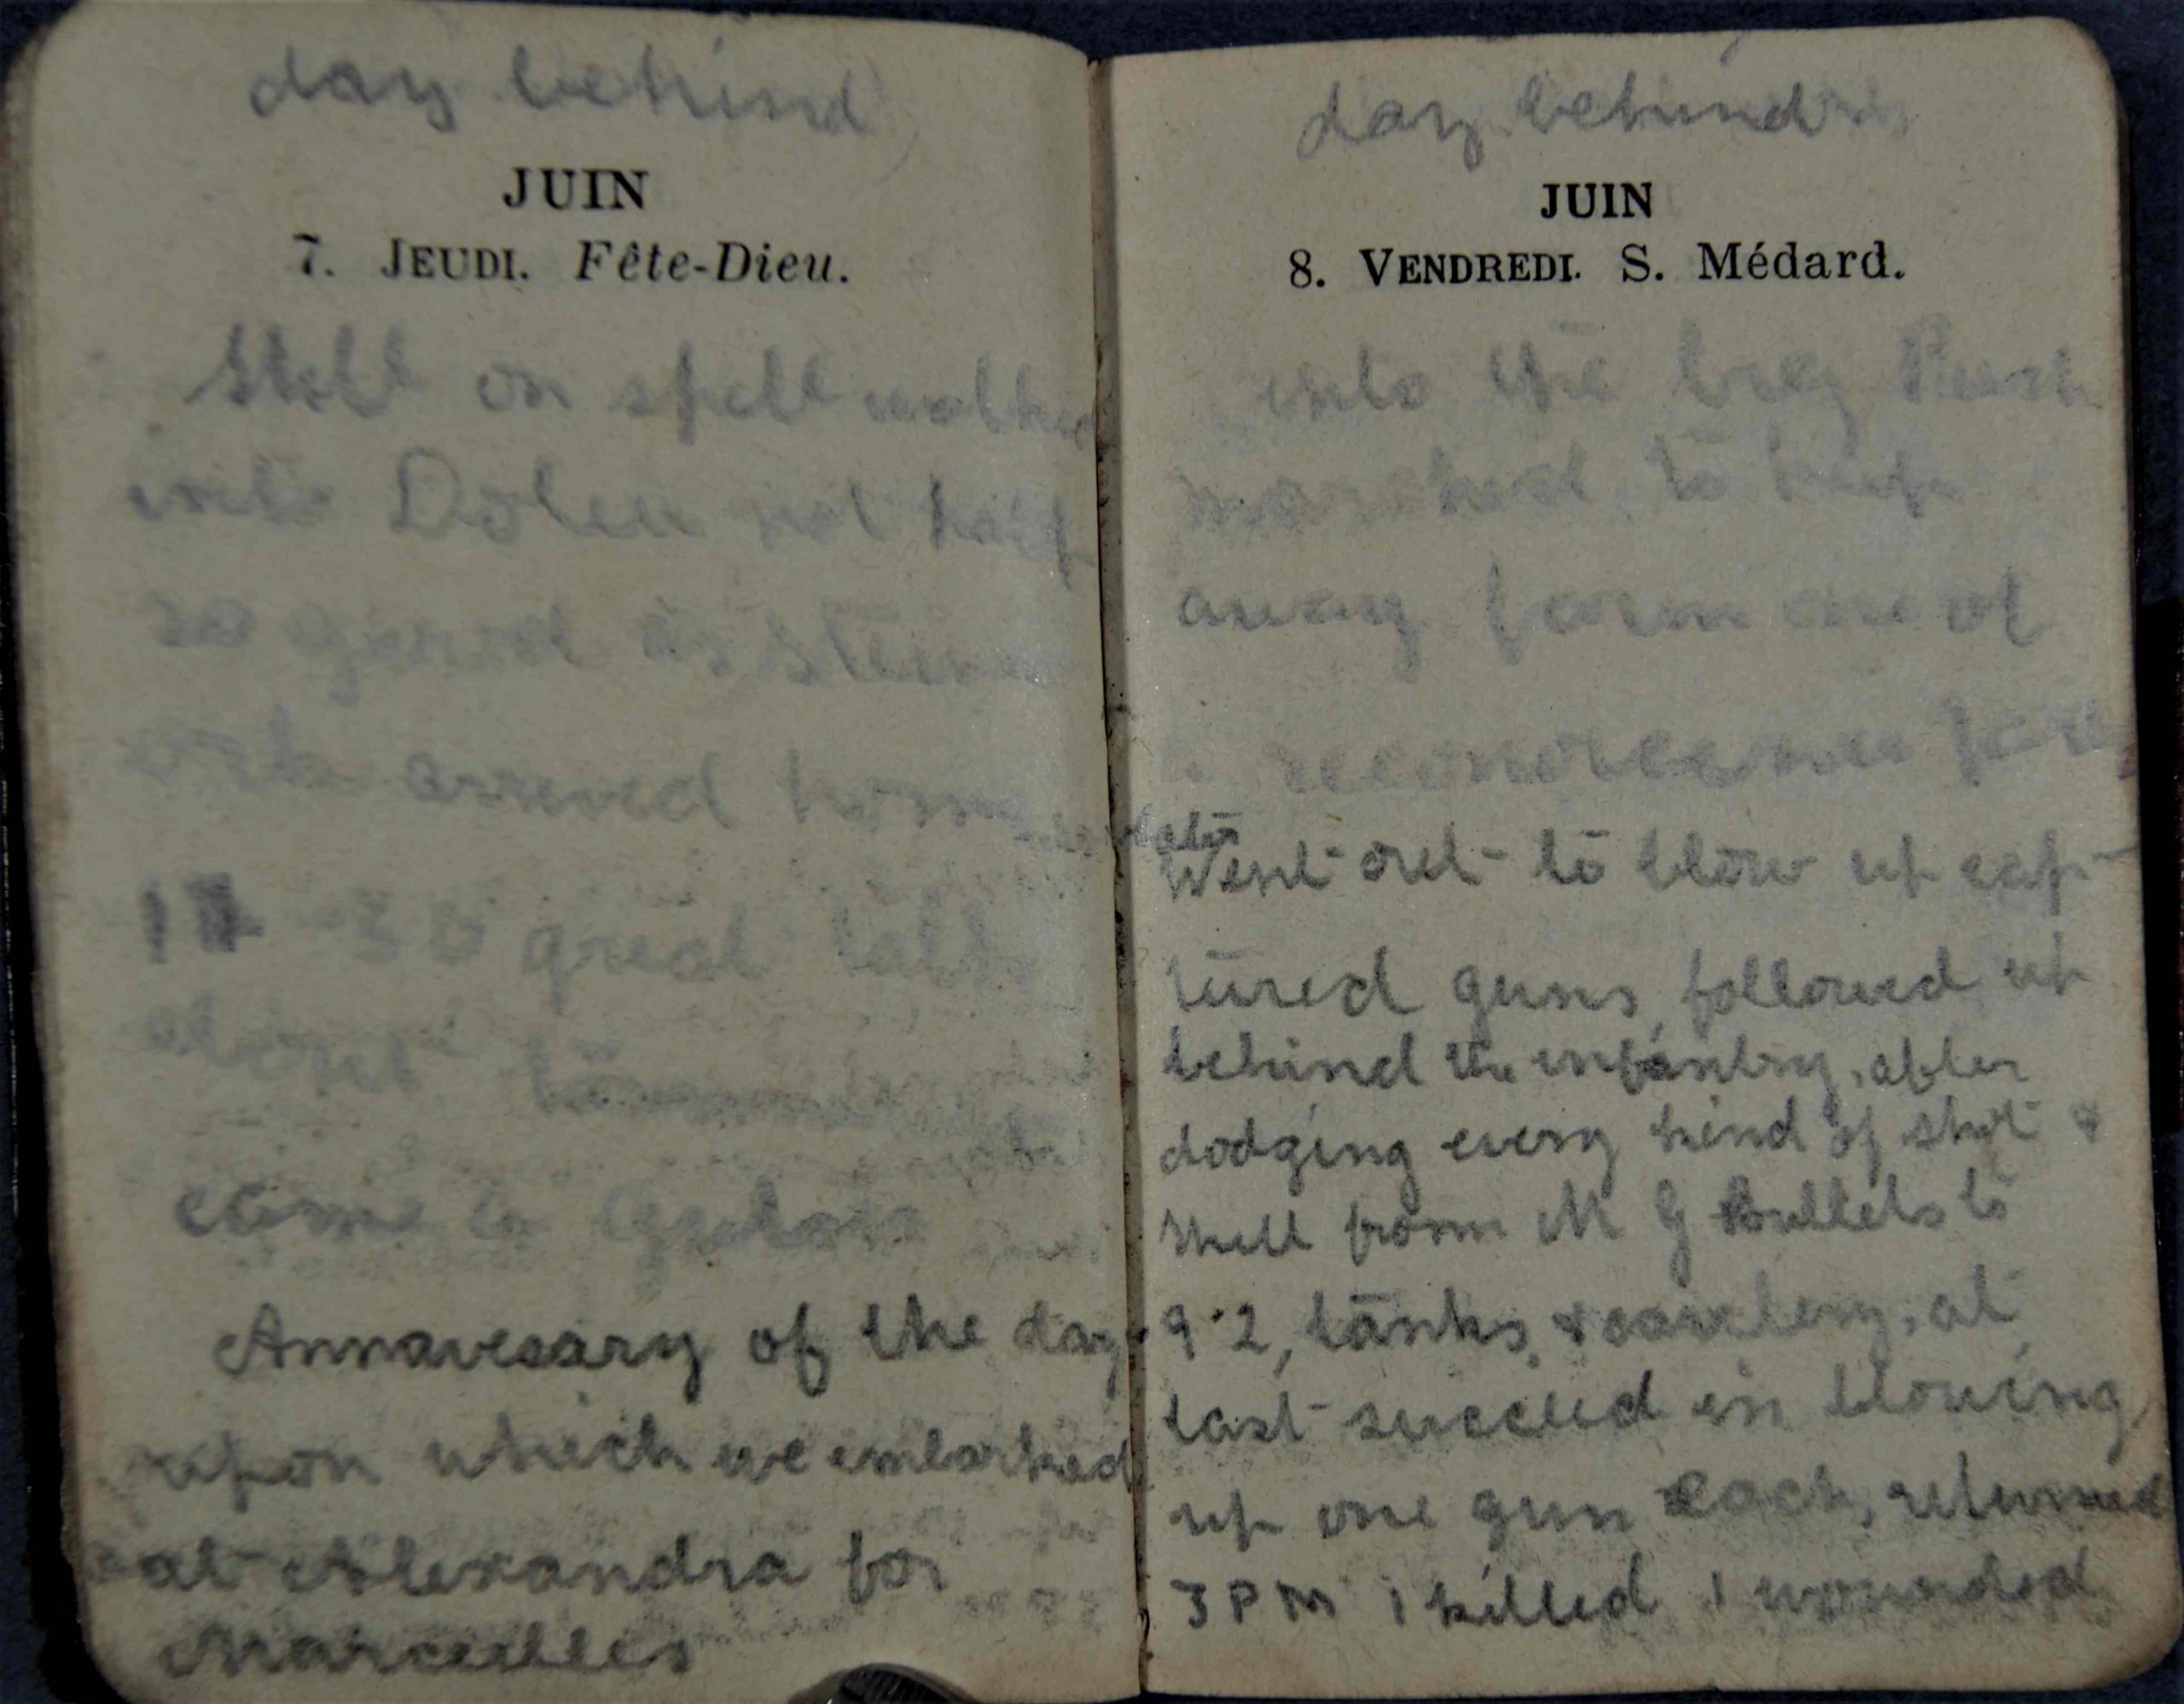 day behind
JUIN
7. JEUDI. Fête-Dieu.
Still on spell walked
into Dolen not half
so good as Steen
arrived home
11 30 great talk
about
come to
Annavesary of the day
upon which we embarked
at Alexandra for
Marceilles
day behind
JUIN
8. VENDREDI. S. Médard.
into the big Push
marched to
away form one of
a reconoicence
Went out to blow up cap-
tured guns, followed up
behind the infantry, after
dodging every kind of shot &
shell from M G Bullets to
9.2, tanks, & at
last succeed in blowing
up one gun each, returned
3 PM 1 killed 1 wounded